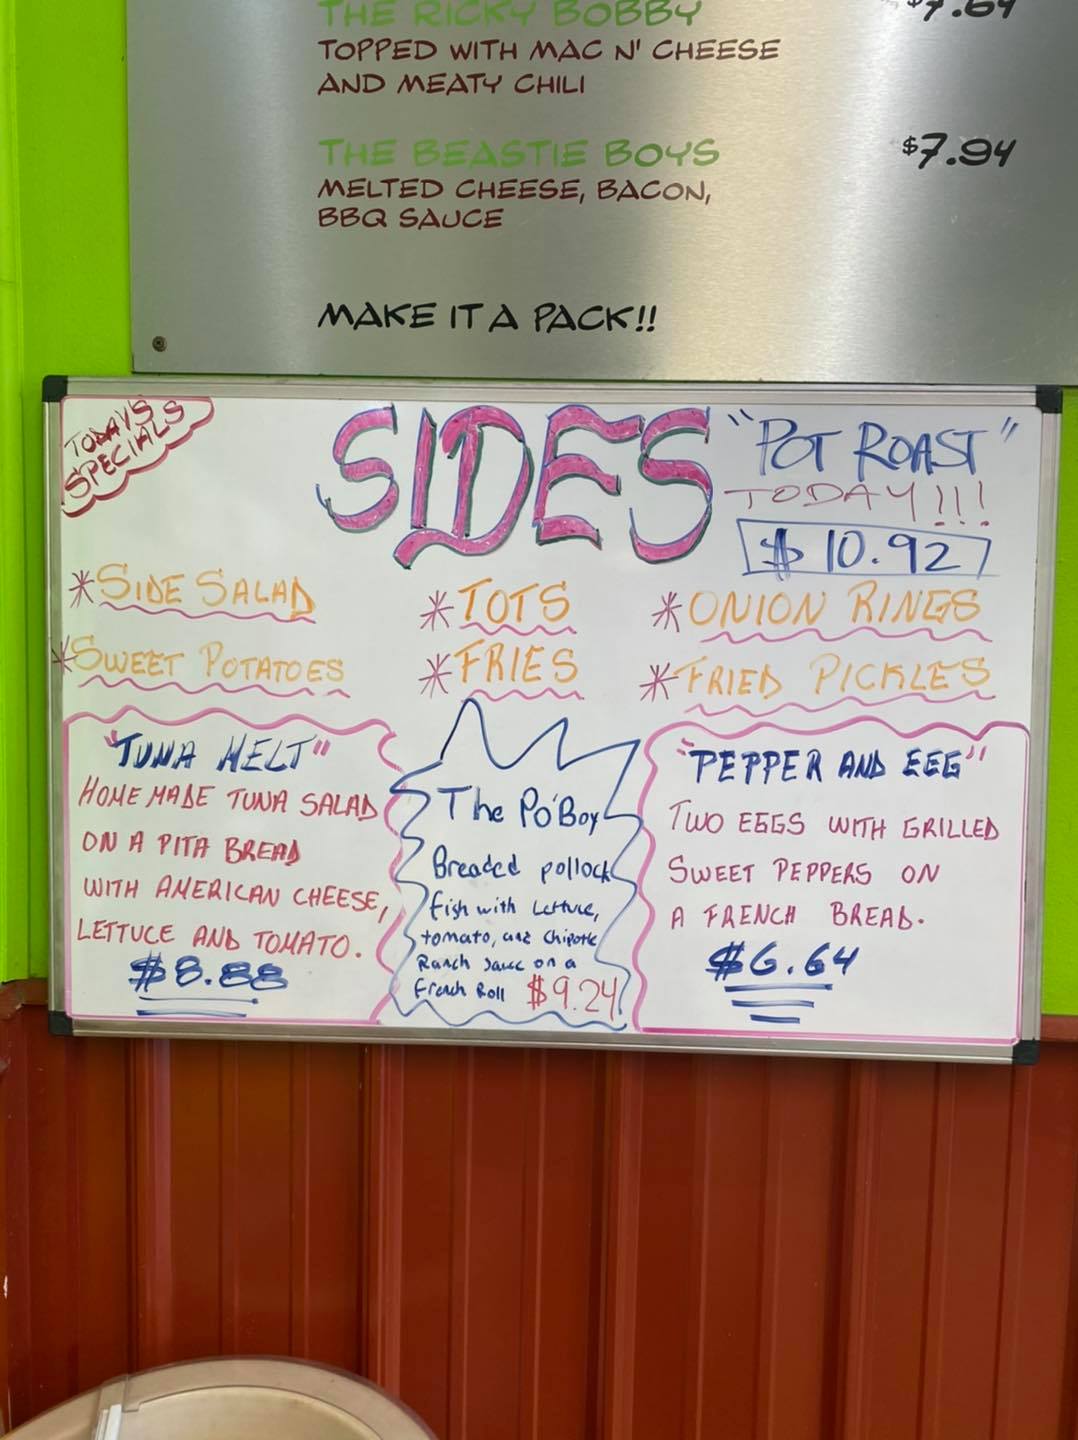 THE RICKY BOBBY $7.64
TOPPED WITH MAC N' CHEESE
AND MEATY CHILI
THE BEASTIE BOYS $7.94
MELTED CHEESE, BACON,
BBQ SAUCE
MAKE IT A PACK!!
TODAYS
SPECIALS
SIDES
"POT ROAST"
TODAY!!!
$10.92
*SIDE SALAD
*TOTS
*ONION RINGS
*SWEET POTATOES
*FRIES
*FRIED PICKLES
"TUNA MELT"
HOME MADE TUNA SALAD
ON A PITA BREAD
WITH AMERICAN CHEESE,
LETTUCE AND TOMATO.
$8.88
The Po'Boy
Breaded pollock
fish with Lettuce,
tomato, and Chipotle
Ranch Sauce on a
French Roll $9.24
"PEPPER AND EGG"
TWO EGGS WITH GRILLED
SWEET PEPPERS ON
A FRENCH BREAD.
$6.64